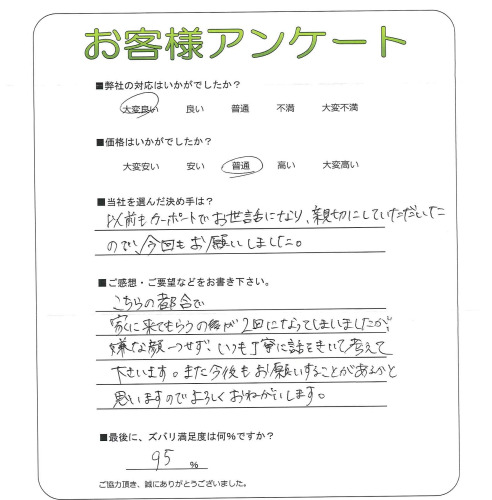 お客様アンケート
■弊社の対応はいかがでしたか？
大変良い 良い 普通 不満 大変不満
■価格はいかがでしたか？
大変安い 安い 普通 高い 大変高い
■当社を選んだ決め手は？
以前もカーポートでお世話になり、親切にしていただいた
ので、今回もお願いしました。
■ご感想・ご要望などをお書き下さい。
こちらの都合で
家に来てもらうの が2回になってしまいましたが、
嫌な顔一つせず、いつも丁寧に話をきいて考えて
下さいます。また今後もお願いすることがあるかと
思いますのでよろしくおねがいします。
■最後に、ズバリ満足度は何%ですか？
95 %
ご協力頂き、誠にありがとうございました。